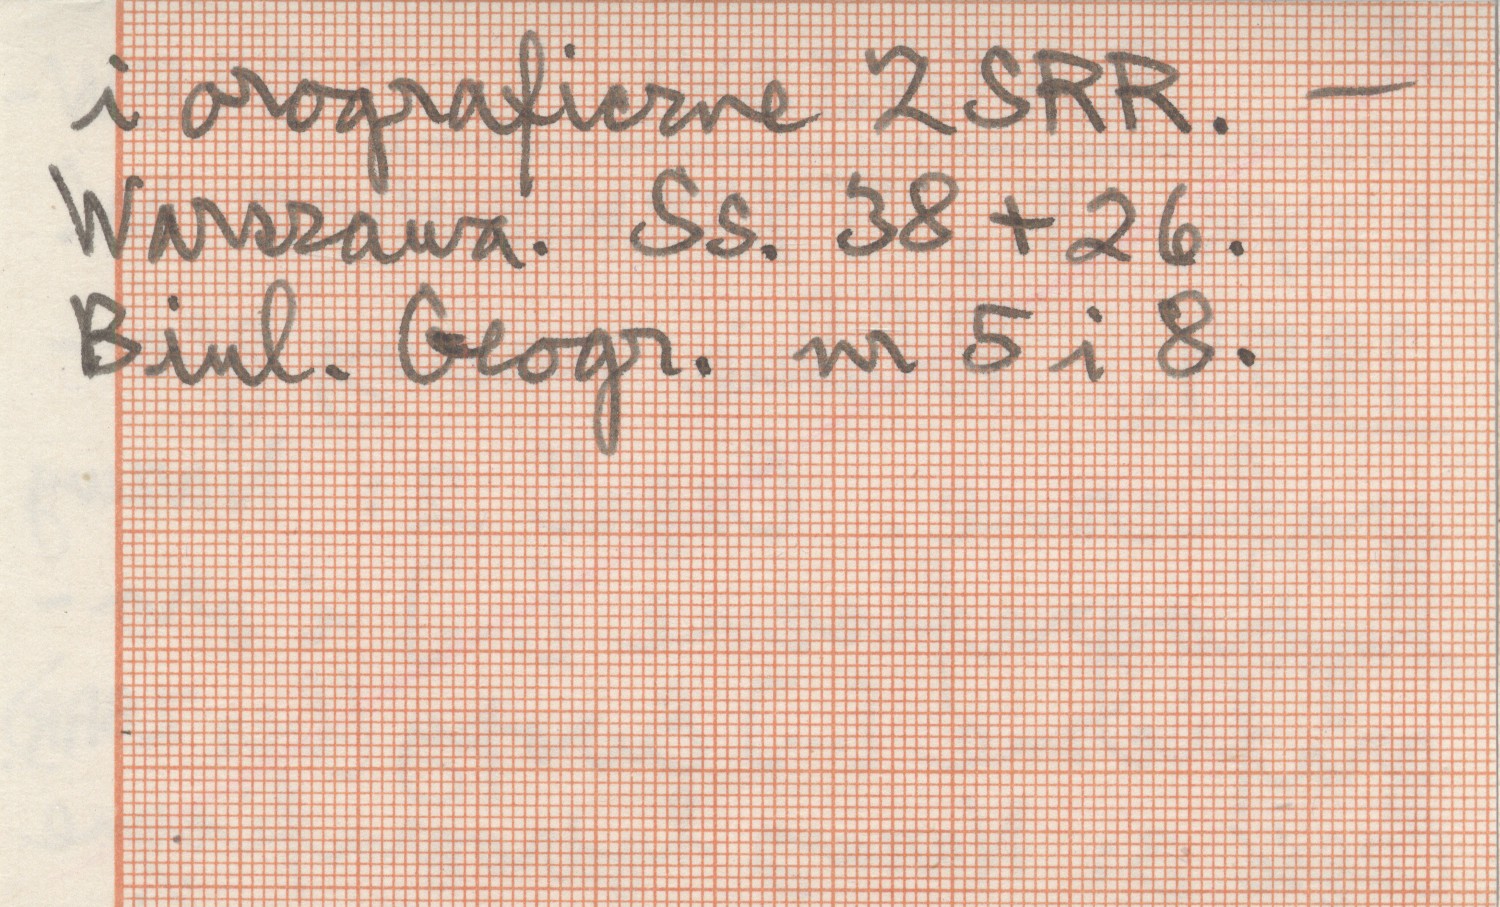 i orograficzne ZSRR. —
Warszawa. Ss. 38 + 26.
Biul. Geogr. nr 5 i 8.